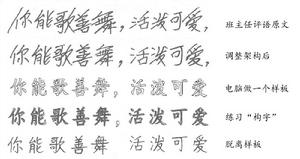 你能歌善舞，活泼可爱， 班主任评语原文
你能歌善舞，活泼可爱， 调整架构后
你能歌善舞，活泼可爱 电脑做一个样板
你能歌善舞，活泼可爱 练习“构字”
你能歌善舞，活泼可爱 脱离样板